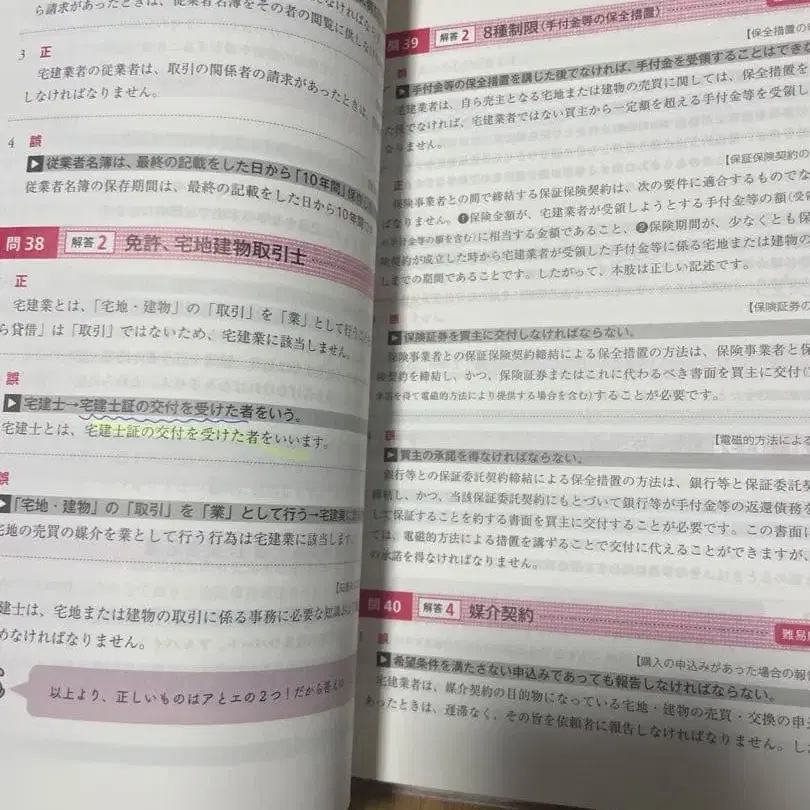 ら請求があったときは、従業者名簿をその者の閲覧に供しな
3 正
宅建業者の従業者は、取引の関係者の請求があったときは、
しなければなりません。
4 誤
▶従業者名簿は、最終の記載をした日から「10年間」保
従業者名簿の保存期間は、最終の記載をした日から10年間
問38 解答2 免許、宅地建物取引士
正
宅建業とは、「宅地・建物」の「取引」を「業」として行う
ら貸借」は「取引」ではないため、宅建業に該当しません。
誤
▶宅建士→宅建士証の交付を受けた者をいう。
宅建士とは、宅建士証の交付を受けた者をいいます。
誤
▶「宅地・建物」の「取引」を「業」として行う→宅建業に
宅地の売買の媒介を業として行う行為は宅建業に該当します。
建士は、宅地または建物の取引に係る事務に必要な知識
めなければなりません。
以上より、正しいものはアとエの2つ!だから答えは
問39 解答2 8種制限(手付金等の保全措置)
【保全措置の
誤
▶手付金等の保全措置を講じた後でなければ、手付金を受領することはでき
宅建業者は、自ら売主となる宅地または建物の売買に関しては、保全措置を
た後でなければ、宅建業者ではない買主から一定額を超える手付金等を受領し
ません。
【保証保険契約の
正
保険事業者との間で締結する保証保険契約は、次の要件に適合するものでな
ばなりません。❶保険金額が、宅建業者が受領しようとする手付金等の額(受領
の手付金等の額を含む)に相当する金額であること、❷保険期間が、少なくとも保
険契約が成立した時から宅建業者が受領した手付金等に係る宅地または建物の
しまでの期間であることです。したがって、本肢は正しい記述です。
【保険証券の
▶保険証券を買主に交付しなければならない。
保険事業者との保証保険契約締結による保全措置の方法は、保険事業者と保
険契約を締結し、かつ、保険証券またはこれに代わるべき書面を買主に交付(
承諾を得て電磁的方法により提供する場合を含む)することが必要です。
【電磁的方法によ
誤
▶買主の承諾を得なければならない。
銀行等との保証委託契約締結による保全措置の方法は、銀行等と保証委託契
締結し、かつ、当該保証委託契約にもとづいて銀行等が手付金等の返還債務を
して保証することを約する書面を買主に交付することが必要です。この書面に
ては、電磁的方法による措置を講ずることで交付に代えることができますが、
の承諾を得なければなりません。
問40 解答4 媒介契約
難易
誤
【購入の申込みがあった場合の報
▶希望条件を満たさない申込みであっても報告しなければならない。
宅建業者は、媒介契約の目的物になっている宅地・建物の売買・交換の申
あったときは、遅滞なく、その旨を依頼者に報告しなければなりません。し